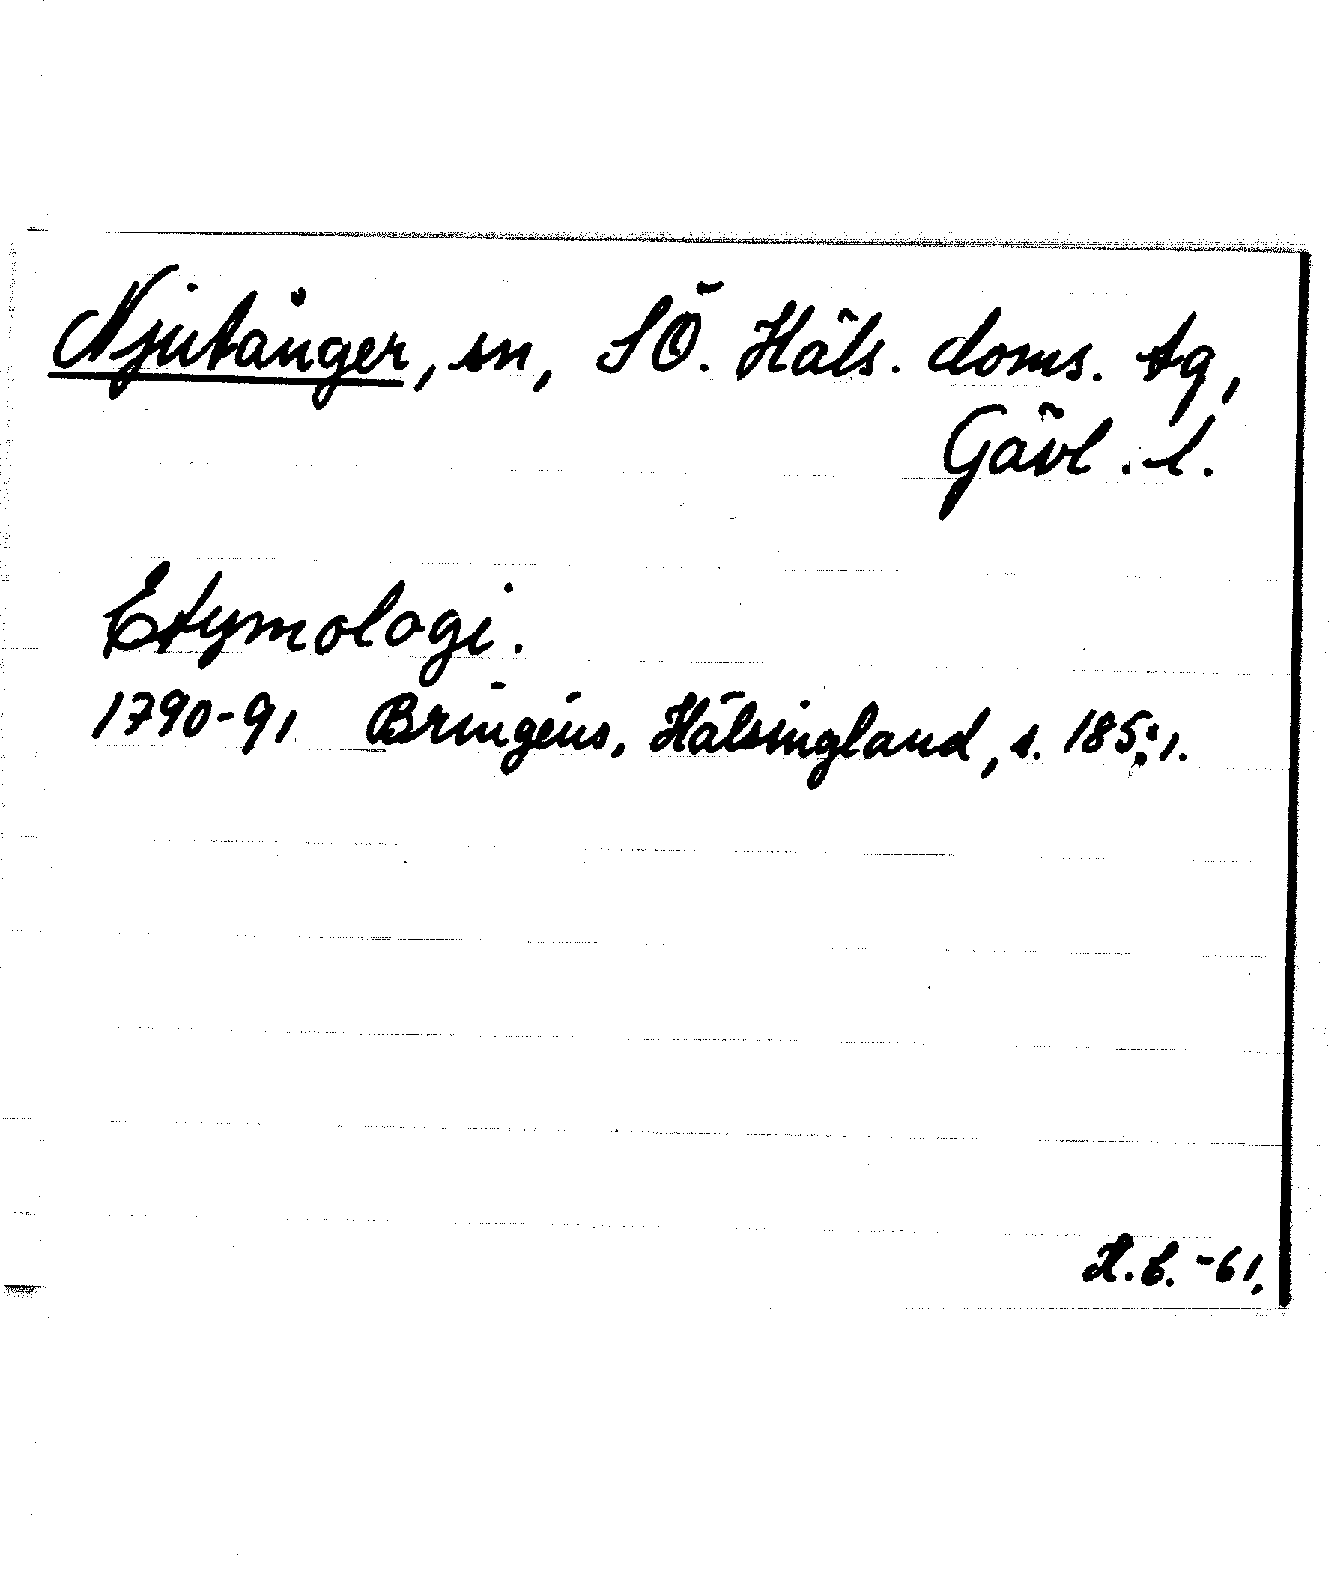 Njutånger, sn, SÖ. Häls. doms. tg,
Gävl. l.
Etymologi.
1790-91 Bringéus, Hälsingland, s. 185:1.
H.B. -61.